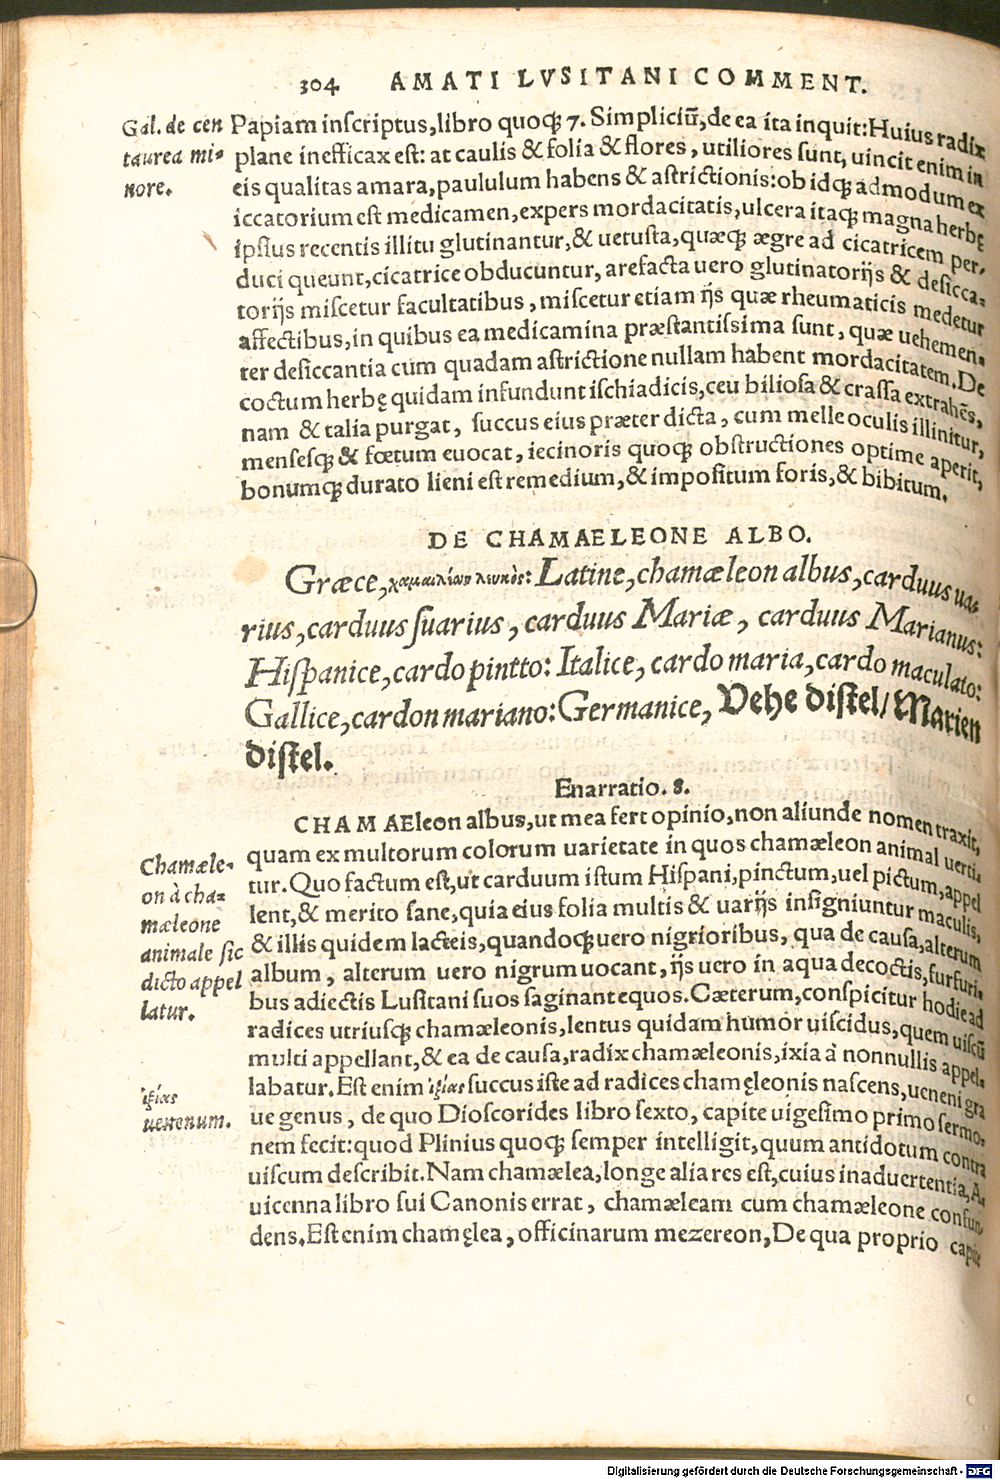 304 AMATI LVSITANI COMMENT.
Gal. de cen
taurea mi-
nore.
Papiam inscriptus, libro quoqꝫ 7. Simpliciũ, de ea ita inquit: Huius radix
plane inefficax est: at caulis & folia & flores, utiliores sunt, uincit enim in
eis qualitas amara, paululum habens & astrictionis: ob idqꝫ admodum ex
iccatorium est medicamen, expers mordacitatis, ulcera itaqꝫ magna herbę
ipsius recentis illitu glutinantur, & uetusta, quæqꝫ ægre ad cicatricem per-
duci queunt, cicatrice obducuntur, arefacta uero glutinatorijs & desicca-
torijs miscetur facultatibus, miscetur etiam ijs quæ rheumaticis medetur
affectibus, in quibus ea medicamina præstantissima sunt, quæ uehemen-
ter desiccantia cum quadam astrictione nullam habent mordacitatem. De
coctum herbę quidam infundunt ischiadicis, ceu biliosa & crassa extrahẽs,
nam & talia purgat, succus eius præter dicta, cum melle oculis illinitur,
mensesqꝫ & fœtum euocat, iecinoris quoqꝫ obstructiones optime aperit,
bonumqꝫ durato lieni est remedium, & impositum foris, & bibitum.
DE CHAMAELEONE ALBO.
Græce, χαμαιλέων λευκὸς: Latine, chamæleon albus, carduus ua-
rius, carduus suarius, carduus Mariæ, carduus Marianus:
Hispanice, cardo pintto: Italice, cardo maria, cardo maculato:
Gallice, cardon mariano: Germanice, Vehe distel/ Marien
distel.
Enarratio. 8.
CHAMAEleon albus, ut mea fert opinio, non aliunde nomen traxit,
quam ex multorum colorum uarietate in quos chamæleon animal uerti-
tur. Quo factum est, ut carduum istum Hispani, pinctum, uel pictum, appel
lent, & merito sane, quia eius folia multis & uarijs insigniuntur maculis,
& illis quidem lacteis, quandoqꝫ uero nigrioribus, qua de causa, alterum
album, alterum uero nigrum uocant, ijs uero in aqua decoctis, furfuri-
bus adiectis Lusitani suos saginant equos. Cæterum, conspicitur hodie ad
radices utriusqꝫ chamæleonis, lentus quidam humor uiscidus, quem uiscũ
multi appellant, & ea de causa, radix chamæleonis, ixia à nonnullis appel-
labatur. Est enim ἰξίας succus iste ad radices chamęleonis nascens, ueneni gra
ue genus, de quo Dioscorides libro sexto, capite uigesimo primo sermo-
nem fecit: quod Plinius quoqꝫ semper intelligit, quum antidotum contra
uiscum describit. Nam chamælea, longe alia res est, cuius inaduertentia, A-
uicenna libro sui Canonis errat, chamæleam cum chamæleone confun-
dens. Est enim chamęlea, officinarum mezereon, De qua proprio capite
Chamæle-
on à cha-
mæleone
animale sic
dicto appel
latur.
ἰξίας
uenenum.
Digitalisierung gefördert durch die Deutsche Forschungsgemeinschaft - DFG